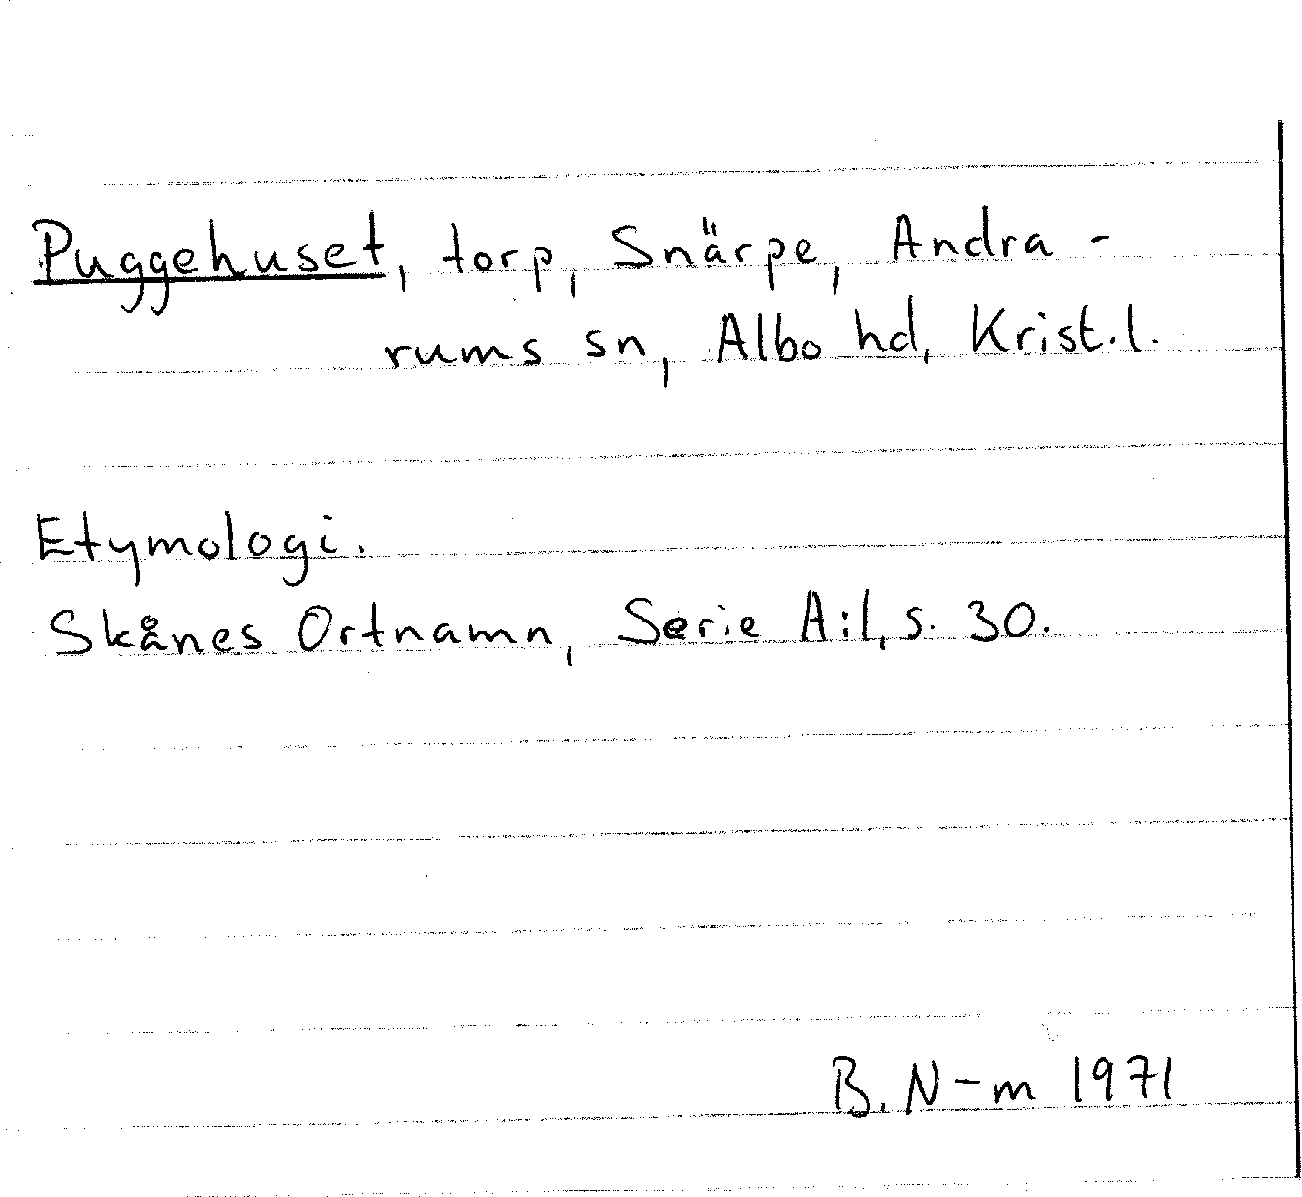 Puggehuset, torp, Snärpe, Andra-
rums sn, Albo hd, Krist. l.
Etymologi.
Skånes Ortnamn, Serie A:1, s. 30.
B. N-m 1971